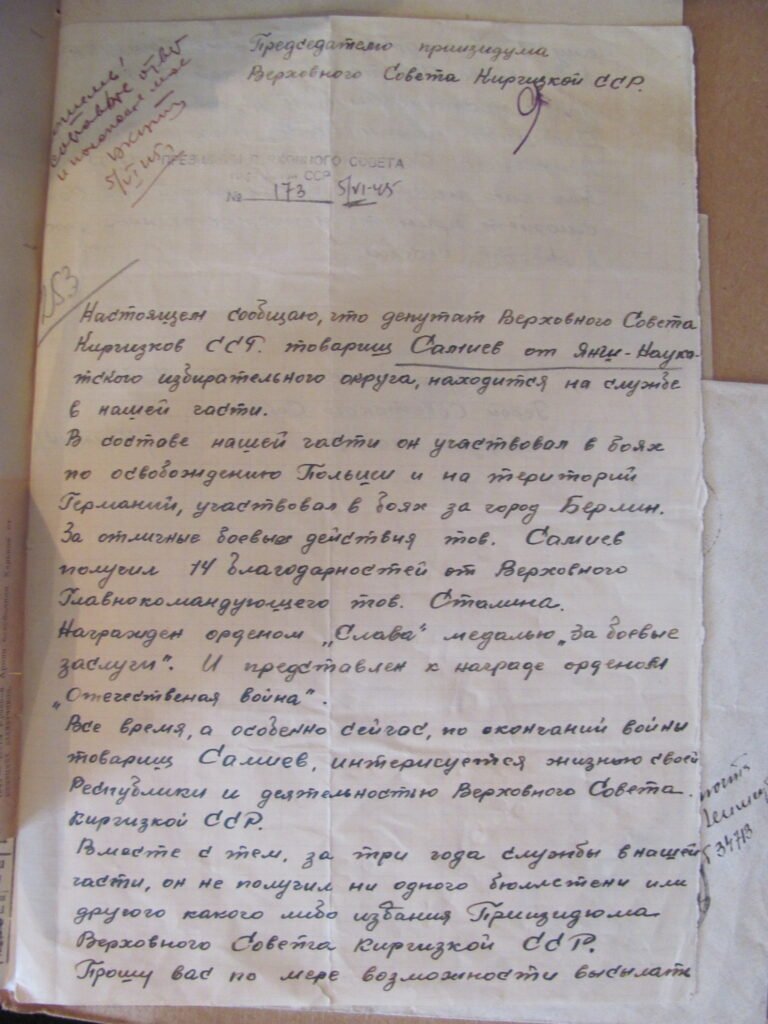 Председателю приизидума
Верховного Совета Киргизкой ССР.
и
5/VI 45
ПРЕЗИДИУМ ВЕРХОВНОГО СОВЕТА
ССР
№ 173 5/VI-45
253
Настоящем сообщаю, что депутат Верховного Совета
Киргизков ССР. товарищ Самиев от Янги-Наука-
тского избирательного округа, находится на службе
в нашей части.
В составе нашей части он участвовал в боях
по освобождению Польши и на територий
Германий, участвовал в боях за город Берлин.
За отличные боевые действия тов. Самиев
получил 14 благодарностей от Верховного
Главнокомандующего тов. Сталина.
Награжден орденом „Слава" медалью „За боевые
заслуги". И представлен к награде орденом
„Отечественая война".
Все время, а особенно сейчас, по окончаний войны
товарищ Самиев, интерисуется жизнью своей
Республики и деятельностью Верховного Совета
Киргизкой ССР.
Вместе с тем, за три года службы в нашей
части, он не получил ни одного бюллетени или
другого какого либо издания Приизидюма
Верховного Совета Киргизкой ССР.
Прошу вас по мере возможности высылать
почта
34713